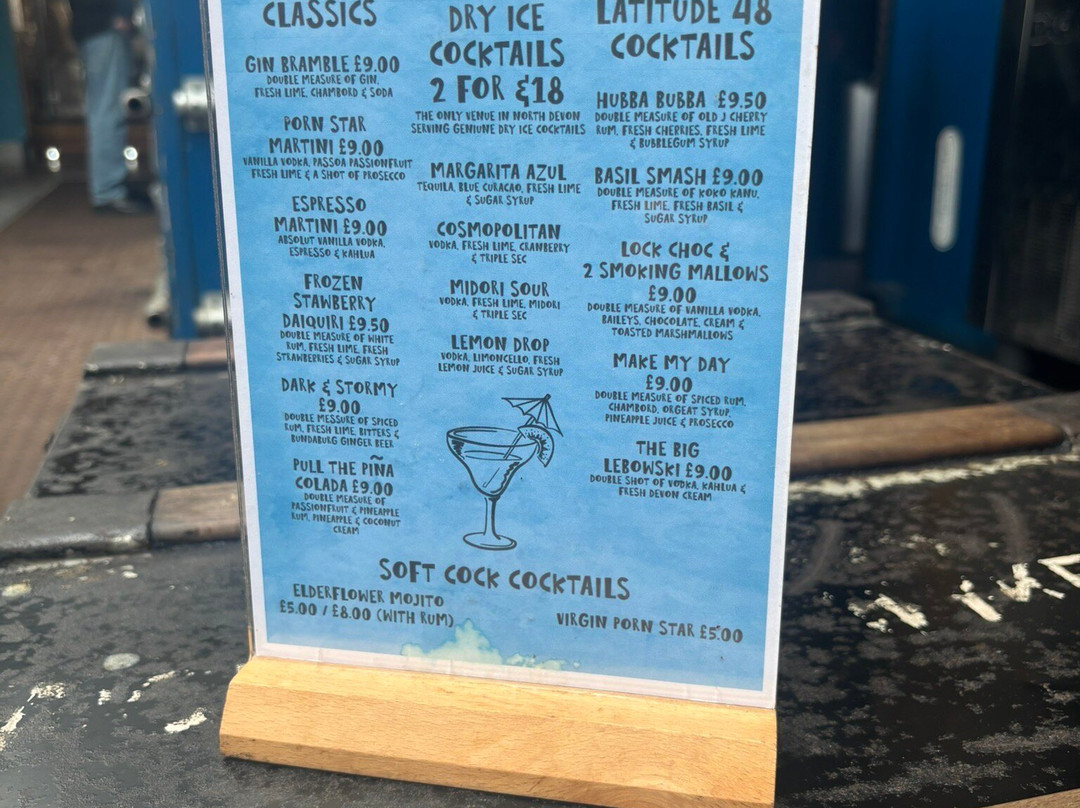 CLASSICS
GIN BRAMBLE £9.00
DOUBLE MEASURE OF GIN,
FRESH LIME, CHAMBORD & SODA
PORN STAR
MARTINI £9.00
VANILLA VODKA, PASSOA PASSIONFRUIT
FRESH LIME & A SHOT OF PROSECCO
ESPRESSO
MARTINI £9.00
ABSOLUT VANILLA VODKA,
ESPRESSO & KAHLUA
FROZEN
STAWBERRY
DAIQUIRI £9.50
DOUBLE MEASURE OF WHITE
RUM, FRESH LIME, FRESH
STRAWBERRIES & SUGAR SYRUP
DARK & STORMY
£9.00
DOUBLE MESSURE OF SPICED
RUM, FRESH LIME, BITTERS &
BUNDABURG GINGER BEER
PULL THE PIÑA
COLADA £9.00
DOUBLE MEASURE OF
PASSIONFRUIT & PINEAPPLE
RUM, PINEAPPLE & COCONUT
CREAM
DRY ICE
COCKTAILS
2 FOR £18
THE ONLY VENUE IN NORTH DEVON
SERVING GENIUNE DRY ICE COCKTAILS
MARGARITA AZUL
TEQUILA, BLUE CURACAO, FRESH LIME
& SUGAR SYRUP
COSMOPOLITAN
VODKA, FRESH LIME, CRANBERRY
& TRIPLE SEC
MIDORI SOUR
VODKA, FRESH LIME, MIDORI
& TRIPLE SEC
LEMON DROP
VODKA, LIMONCELLO, FRESH
LEMON JUICE & SUGAR SYRUP
LATITUDE 48
COCKTAILS
HUBBA BUBBA £9.50
DOUBLE MEASURE OF OLD J CHERRY
RUM, FRESH CHERRIES, FRESH LIME
& BUBBLEGUM SYRUP
BASIL SMASH £9.00
DOUBLE MEASURE OF KOKO KANU,
FRESH LIME, FRESH BASIL &
SUGAR SYRUP
LOCK CHOC &
2 SMOKING MALLOWS
£9.00
DOUBLE MEASURE OF VANILLA VODKA,
BAILEYS, CHOCOLATE, CREAM &
TOASTED MARSHMALLOWS
MAKE MY DAY
£9.00
DOUBLE MEASURE OF SPICED RUM,
CHAMBORD, ORGEAT SYRUP,
PINEAPPLE JUICE & PROSECCO
THE BIG
LEBOWSKI £9.00
DOUBLE SHOT OF VODKA, KAHLUA &
FRESH DEVON CREAM
SOFT COCK COCKTAILS
ELDERFLOWER MOJITO
£5.00 / £8.00 (WITH RUM)
VIRGIN PORN STAR £5.00